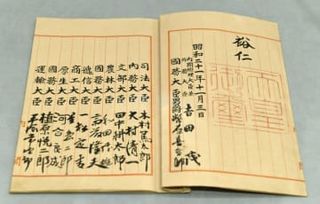 裕仁
昭和二十一年十一月三日
内閣總理大臣兼
外務大臣 吉田茂
國務大臣 男爵 幣原喜重郎
司法大臣 木村篤太郎
内務大臣 大村清一
文部大臣 田中耕太郎
農林大臣 和田博雄
國務大臣 斎藤隆夫
遞信大臣 一松定吉
商工大臣 星島二郎
厚生大臣 河合良成
國務大臣 植原悦二郎
運輸大臣 平塚常次郎